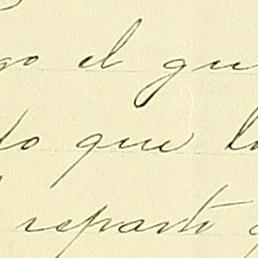 go el gu
do que lo
reparti